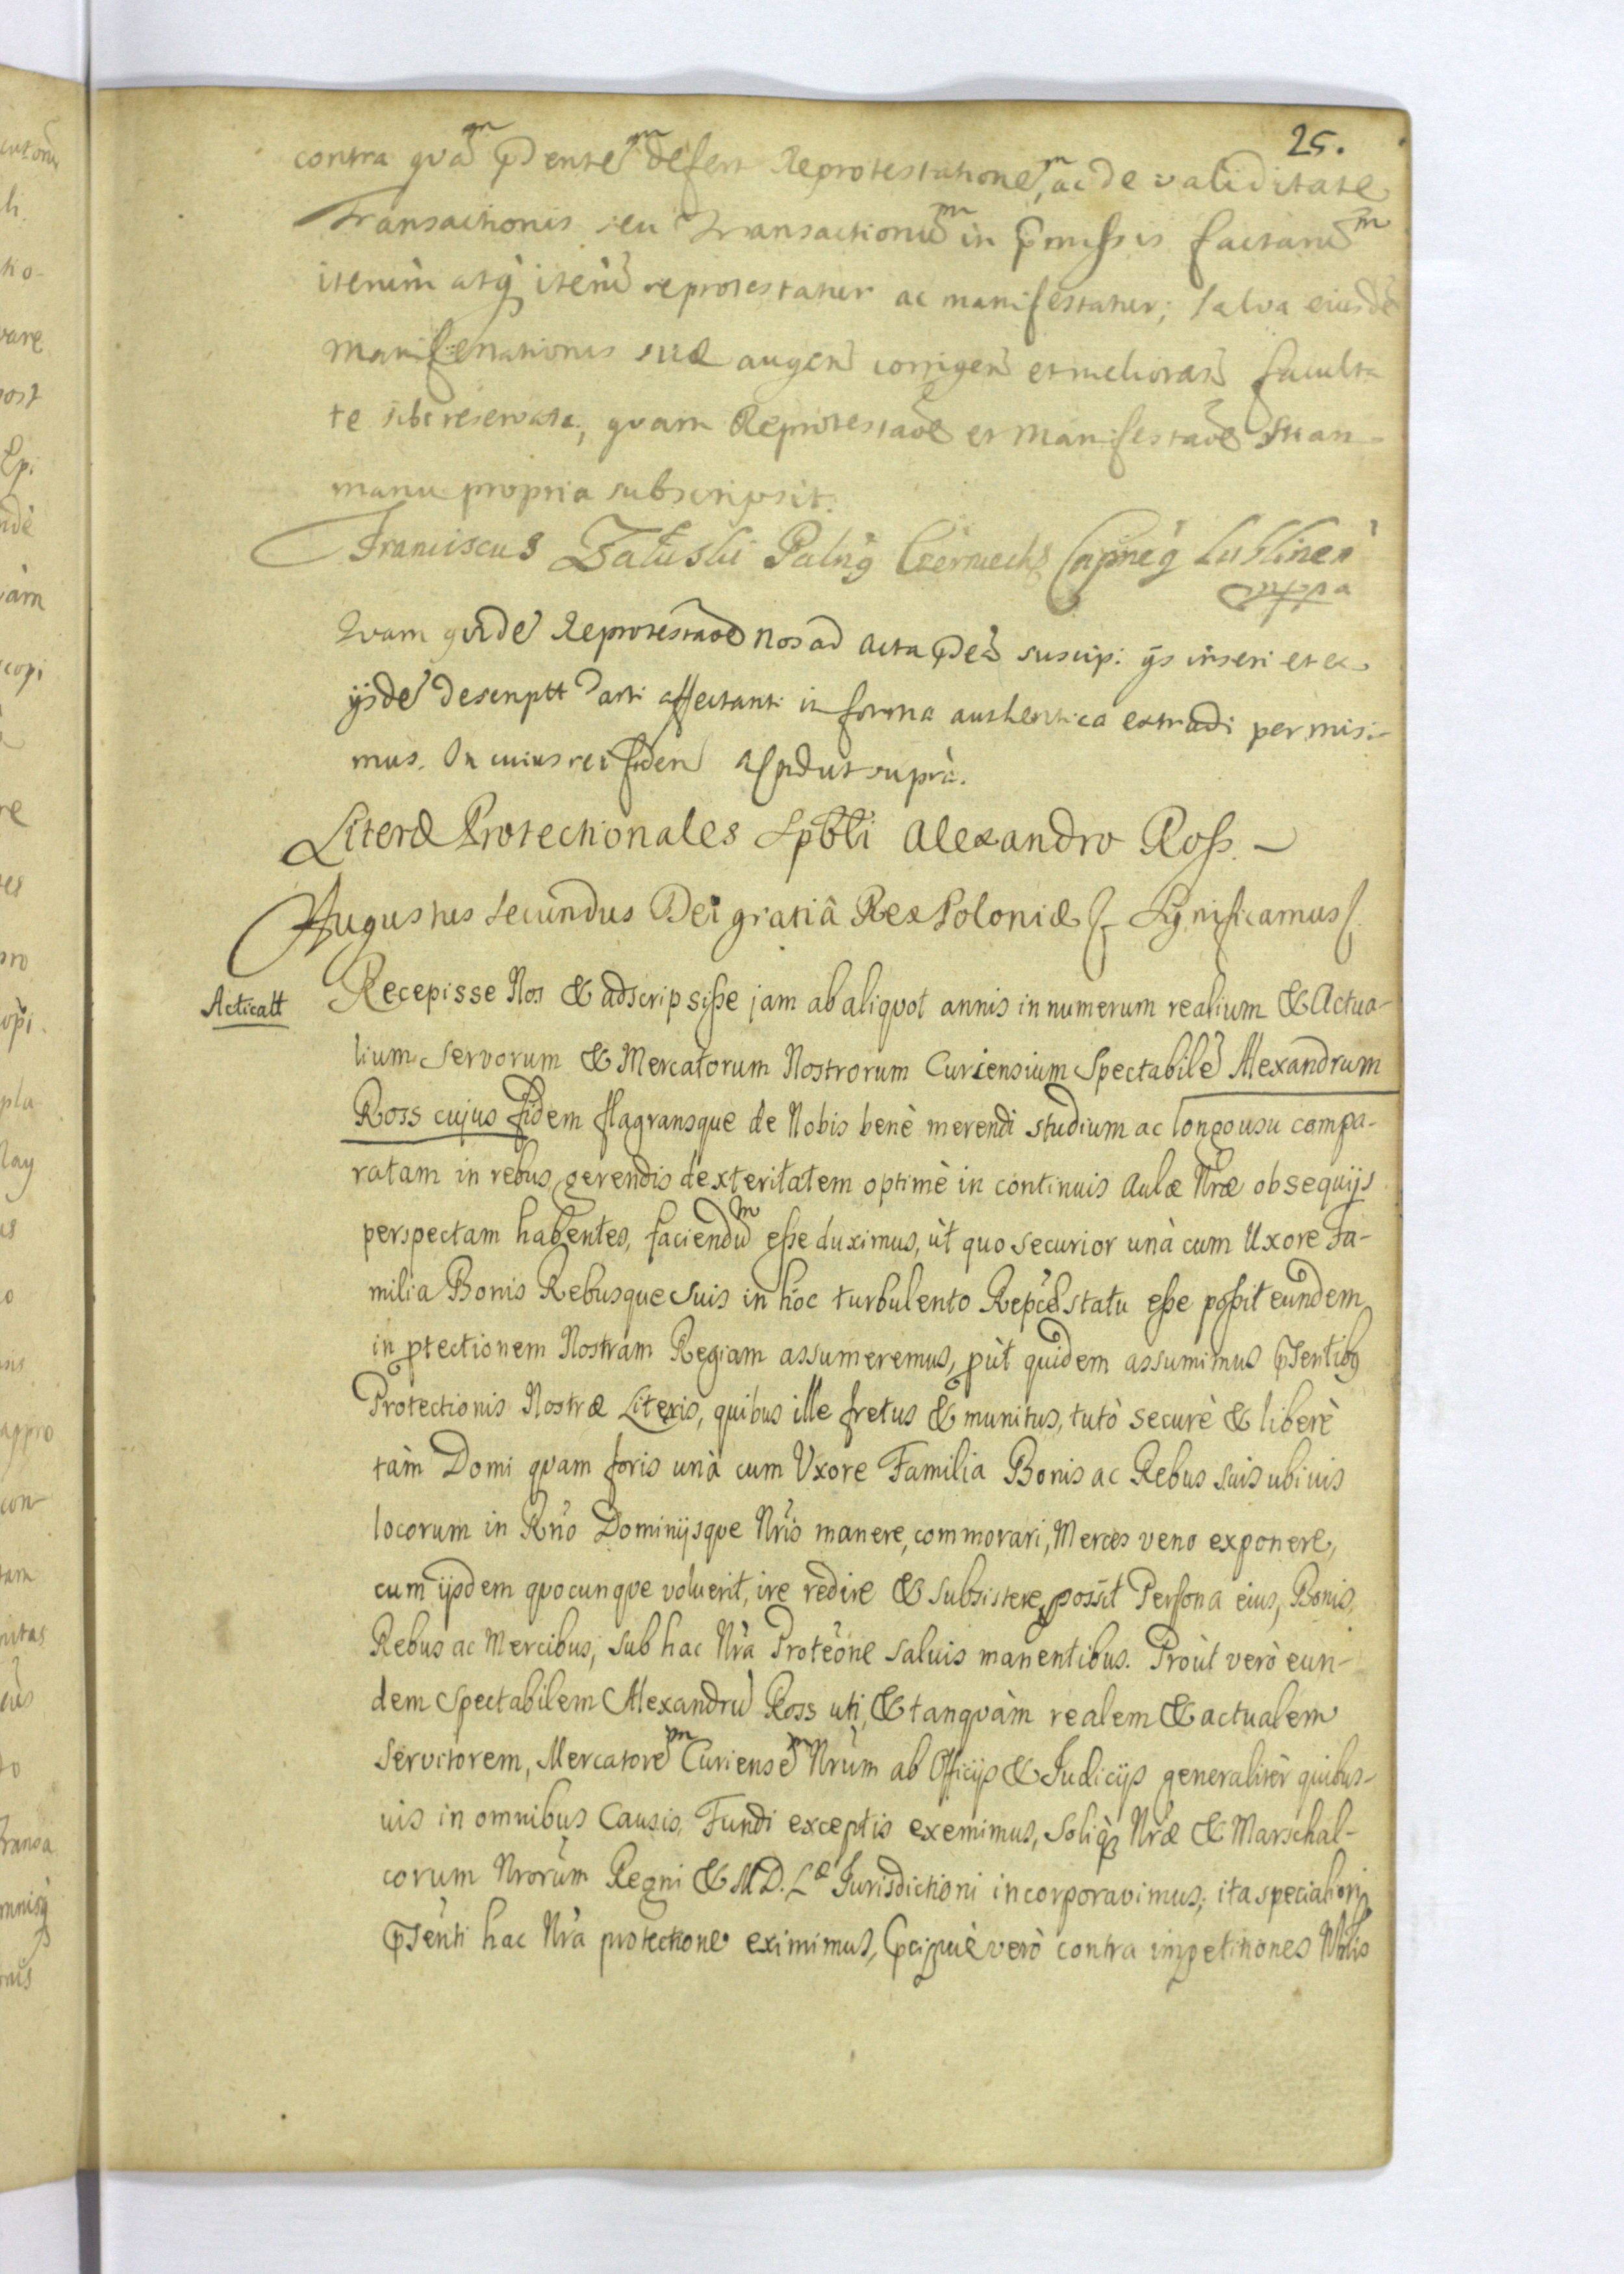 25.
contra quam prdentem defert Reprotestationem, ac de validitate
Transactionis seu Transactionum in prmissis factarum
iterum atq iterum reprotestatur ac manifestatur; salva eiusde
Manifestationis suæ augen corrigen et melioran faculta
te sibi reservata, quam Reprotestaoe et Manifestaoe suam
manu propria subscripsit.
Franciscus Załuski Palns Czerniechs Capneus Lublinen
mppa
Quam quide Reprotestaoe nos ad Acta prden suscipi ijs inseri et ex
ijsde descriptt Parti affectanti in forma authentica extradi permisi-
mus. In cuius rei fidem ut supra.
Literæ Protectionales Spbli Alexandro Ross. —
Augustus Secundus Dei gratiâ Rex Poloniæ Significamus
Acticatt
Recepisse Nos & adscripsisse jam ab aliquot annis in numerum realium & Actua-
lium Servorum & Mercatorum Nostrorum Curiensium Spectabile Alexandrum
Ross cujus fidem flagransque de Nobis benè merendi studium ac longo usu compa-
ratam in rebus gerendis dexteritatem optimè in continuis Aulæ Nræ obsequijs
perspectam habentes, faciendum esse duximus, ùt quo securior unà cum Uxore Fa-
milia Bonis Rebusque Suis in hoc turbulento Repcæ statu esse possit eundem
in ptectionem Nostram Regiam assumeremus, pùt quidem assumimus prsentibq
Protectionis Nostræ Literis, quibus ille fretus & munitus, tutò securè & liberè
tàm Domi quam foris unà cum Vxore Familia Bonis ac Rebus suis ubivis
locorum in Rno Dominijsque Nris manere, commorari, Merces veno exponere,
cum ijsdem quocunque voluerit, ire redire & subsistere, possit Persona eius, Bonis,
Rebus ac Mercibus, sub hac Nra Proteone salvis manentibus. Proùt verò eun-
dem Spectabilem Alexandru Ross uti, & tanquàm realem & actualem
Servitorem, Mercatorem Curiensem Nrum ab Officijs & Judicijs generalitèr quibus-
vis in omnibus Causis, Fundi exceptis exemimus, Soliq Nræ & Marschal-
corum Nrorum Regni & M.D.Læ Jurisdictioni incorporavimus, ita speciali ori
prsenti hac Nra protectione eximimus, prcipuè verò contra impetitiones Nblis